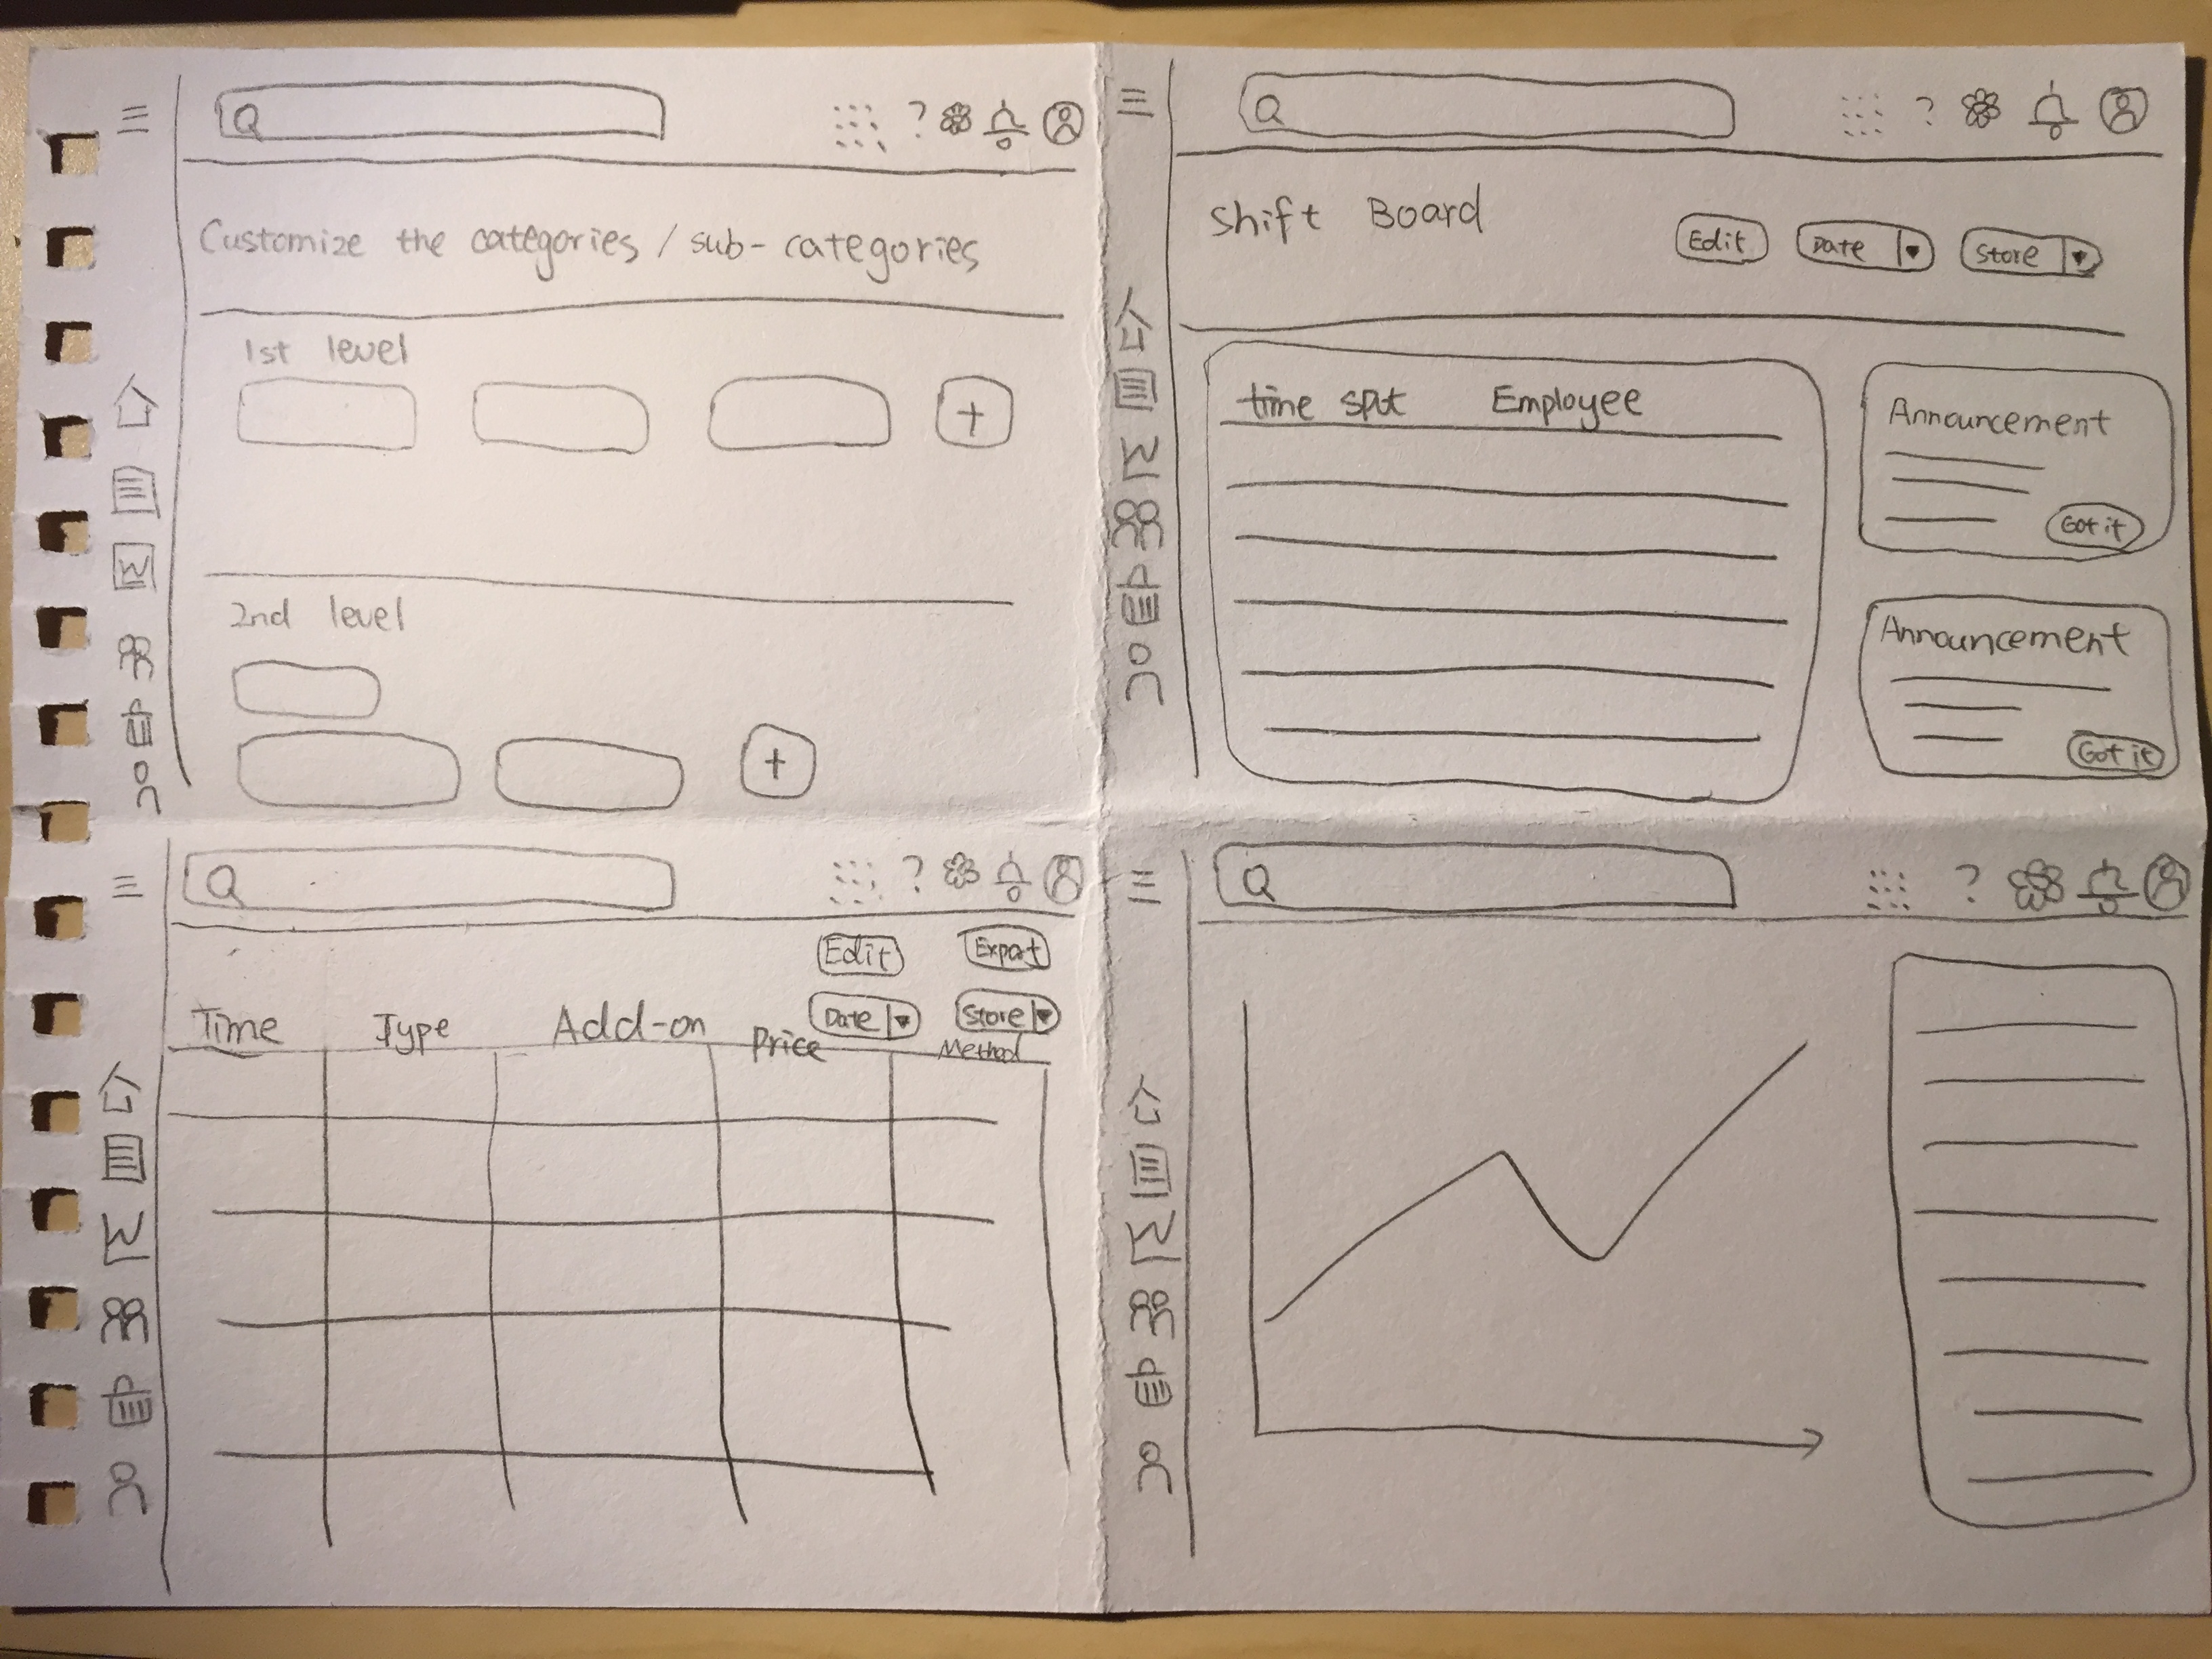 Customize the categories / sub-categories
1st level
+
2nd level
+
?
Shift Board
Edit
Date
Store
time spot Employee
Announcement
Got it
Announcement
Got it
?
Edit Export
Date Store
Time Type Add-on Price Method
?
?